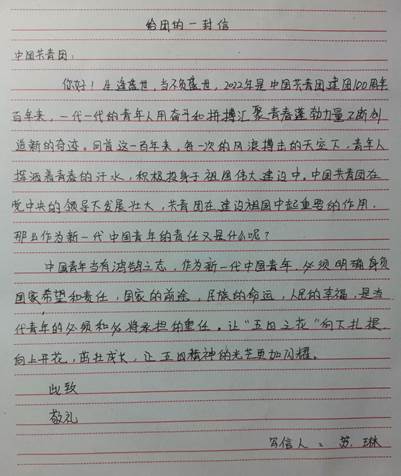 给团的一封信
中国共青团:
你好!生逢盛世,当不负盛世,2022年是中国共青团建团100周年
百年来,一代一代的青年人用奋斗和拼搏汇聚青春蓬勃力量不断创
造新的奇迹。回首这一百年来,每一次的风浪搏击的天空下,青年人
挥洒着青春的汗水,积极投身于祖国伟大建设中。中国共青团在
党中央的领导下发展壮大,共青团在建设祖国中起重要的作用,
那么作为新一代中国青年的责任又是什么呢?
中国青年当有鸿鹄之志,作为新一代中国青年,必须明确身负
国家希望和责任,国家的前途,民族的命运,人民的幸福,是当
代青年的必须和必将承担的重任。让“五四之花”向下扎根,
向上开花,茁壮成长,让五四精神的光芒更加闪耀。
此致
敬礼
写信人:苏琳